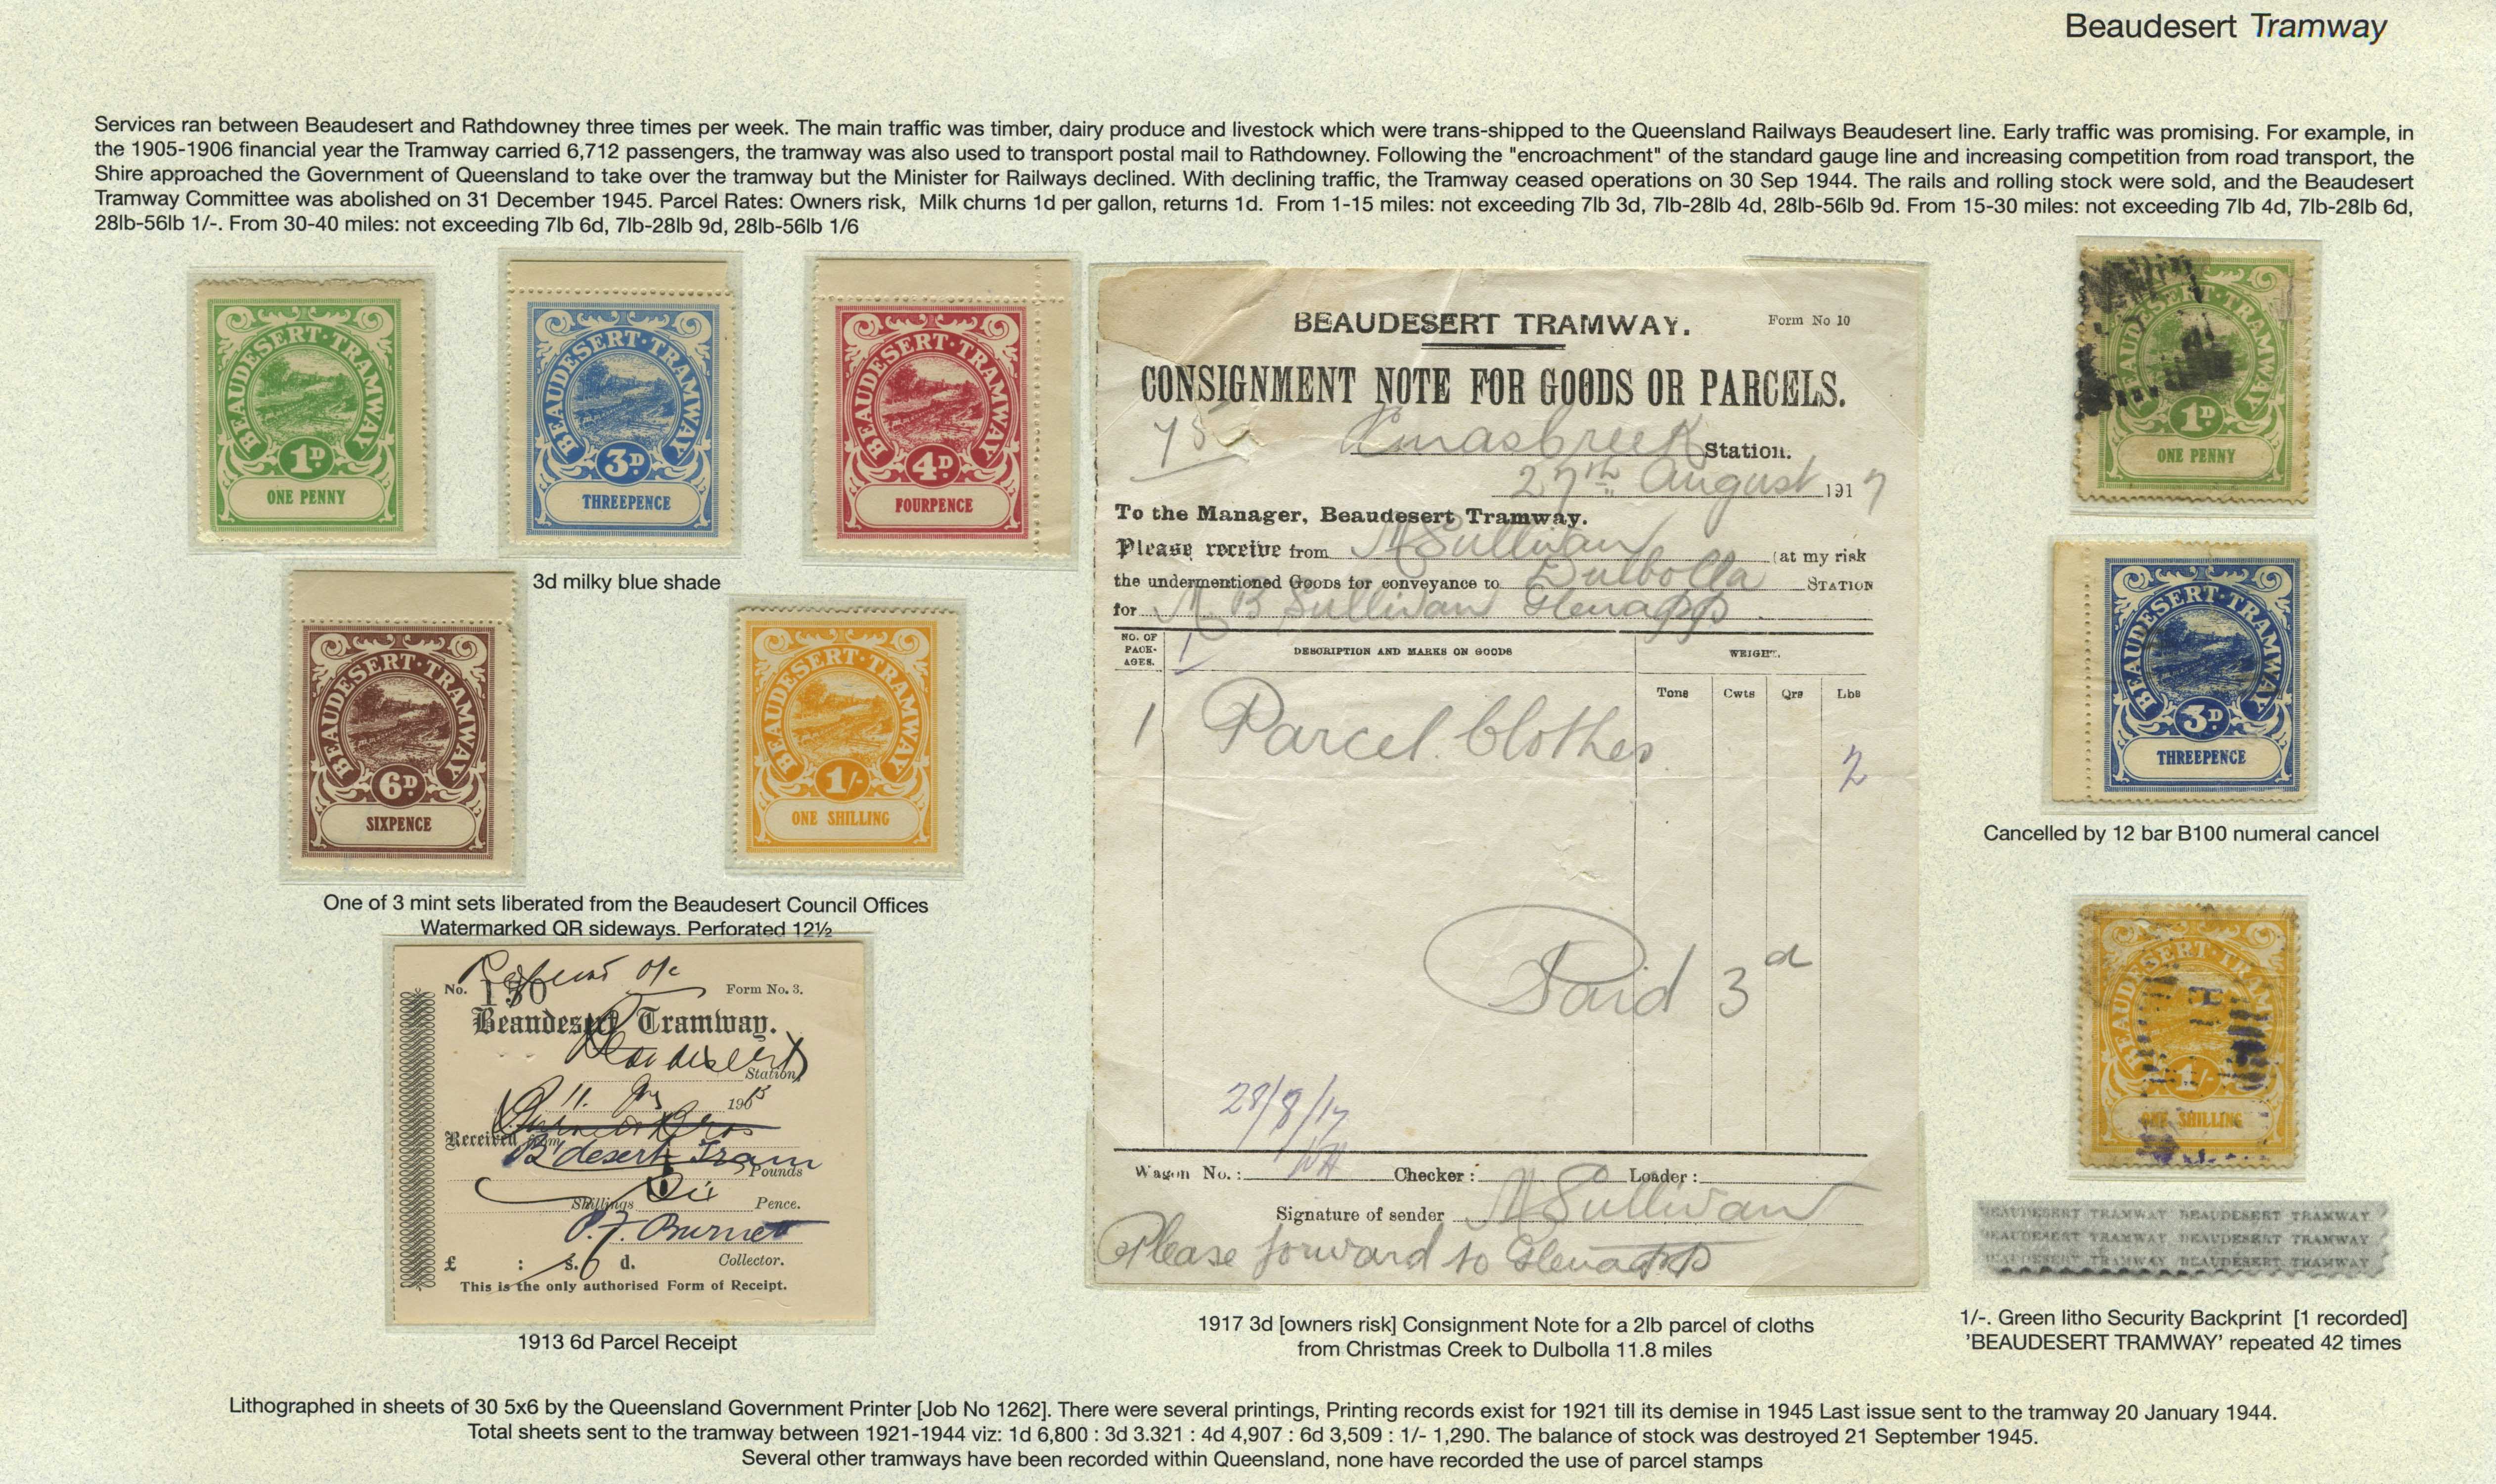 Beaudesert Tramway
Services ran between Beaudesert and Rathdowney three times per week. The main traffic was timber, dairy produce and livestock which were trans-shipped to the Queensland Railways Beaudesert line. Early traffic was promising. For example, in
the 1905-1906 financial year the Tramway carried 6,712 passengers, the tramway was also used to transport postal mail to Rathdowney. Following the "encroachment" of the standard gauge line and increasing competition from road transport, the
Shire approached the Government of Queensland to take over the tramway but the Minister for Railways declined. With declining traffic, the Tramway ceased operations on 30 Sep 1944. The rails and rolling stock were sold, and the Beaudesert
Tramway Committee was abolished on 31 December 1945. Parcel Rates: Owners risk, Milk churns 1d per gallon, returns 1d. From 1-15 miles: not exceeding 7lb 3d, 7lb-28lb 4d, 28lb-56lb 9d. From 15-30 miles: not exceeding 7lb 4d, 7lb-28lb 6d,
28lb-56lb 1/-. From 30-40 miles: not exceeding 7lb 6d, 7lb-28lb 9d, 28lb-56lb 1/6
BEAUDESERT·TRAMWAY
1D
ONE PENNY
BEAUDESERT·TRAMWAY
3D
THREEPENCE
BEAUDESERT·TRAMWAY
4D
FOURPENCE
3d milky blue shade
BEAUDESERT·TRAMWAY
6D
SIXPENCE
BEAUDESERT·TRAMWAY
1/-
ONE SHILLING
One of 3 mint sets liberated from the Beaudesert Council Offices
Watermarked QR sideways. Perforated 12½
No. Form No. 3.
Beaudesert Tramway.
Beaudesert
Station,
11. 190
Received from
B'desert Tram
Pounds
Shillings Six Pence.
P. F. Burnett
£ : s. 6 d. Collector.
This is the only authorised Form of Receipt.
1913 6d Parcel Receipt
BEAUDESERT TRAMWAY. Form No 10
CONSIGNMENT NOTE FOR GOODS OR PARCELS.
75
Xmas Creek Station.
27th August 1917
To the Manager, Beaudesert Tramway.
Please receive from M Sullivan (at my risk
the undermentioned Goods for conveyance to Dulbolla STATION
for M. B Sullivan Glenapp
NO. OF PACK-AGES. DESCRIPTION AND MARKS ON GOODS WEIGHT.
Tons Cwts Qrs Lbs
1 Parcel Clothes 2
Paid 3d
28/8/17
Wagon No.: Checker: Loader:
Signature of sender M Sullivan
Please forward to Glenapp
1917 3d [owners risk] Consignment Note for a 2lb parcel of cloths
from Christmas Creek to Dulbolla 11.8 miles
BEAUDESERT·TRAMWAY
1D
ONE PENNY
BEAUDESERT·TRAMWAY
3D
THREEPENCE
Cancelled by 12 bar B100 numeral cancel
BEAUDESERT·TRAMWAY
1/-
ONE SHILLING
BEAUDESERT TRAMWAY BEAUDESERT TRAMWAY
BEAUDESERT TRAMWAY BEAUDESERT TRAMWAY
BEAUDESERT TRAMWAY BEAUDESERT TRAMWAY
1/-. Green litho Security Backprint [1 recorded]
'BEAUDESERT TRAMWAY' repeated 42 times
Lithographed in sheets of 30 5x6 by the Queensland Government Printer [Job No 1262]. There were several printings, Printing records exist for 1921 till its demise in 1945 Last issue sent to the tramway 20 January 1944.
Total sheets sent to the tramway between 1921-1944 viz: 1d 6,800 : 3d 3.321 : 4d 4,907 : 6d 3,509 : 1/- 1,290. The balance of stock was destroyed 21 September 1945.
Several other tramways have been recorded within Queensland, none have recorded the use of parcel stamps